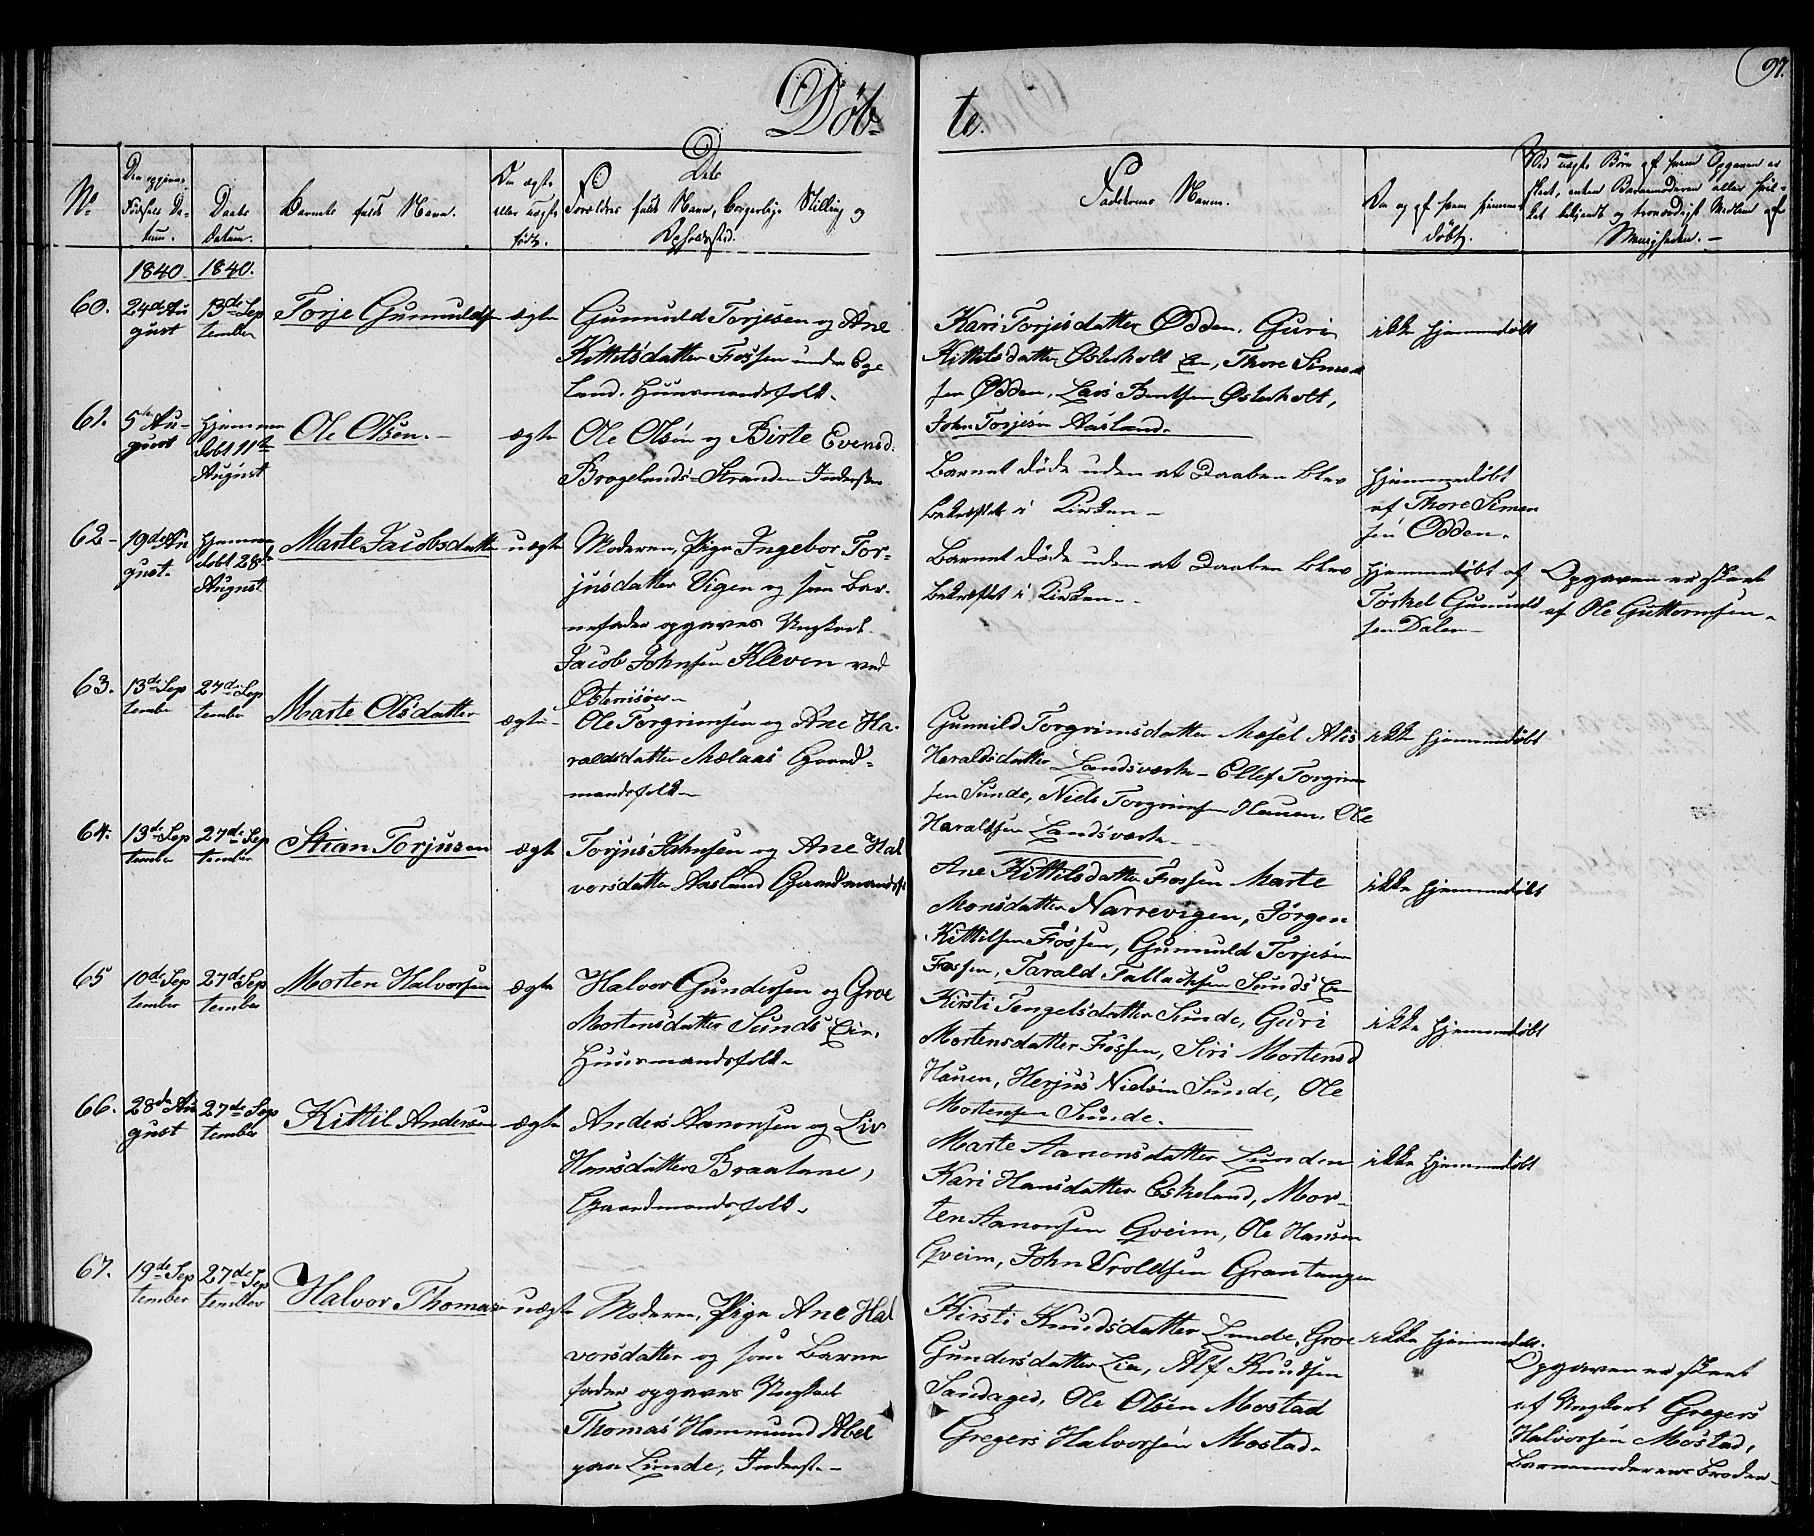 97.
Døb-
te.
No
Den opgivne
Fødsels Da-
tum.
Daabs
Datum.
Barnets fulde Navn.
Om ægte
eller uægte
født.
Dets
Forældres fulde Navn, borgerlige Stilling og
Opholdssted.
Faddernes Navne.
Om og af hvem hjemme
døbt.
Ved uægte Børn af hvem Opgaven er
skeet, enten Barnemoderen eller hvil-
ket bekjendt og troværdigt Medlem af
Menigheden.-
1840.
1840.
60.
24de Au
gust
13de Sep
tember
Torje Gumulds
ægte
Gumuld Torjesen og Ane
Kittelsdatter Fossen under Ege
land. Huusmandsfolk.
Kari Torjisdatter Ødden, Guri
Kittelsdatter Østerholt, Thore Simen
sen Ødden, Lars Bentsen Østerholt,
John Torjesen Aasland.
ikke hjemmedøbt
61.
5te Au-
gust
Hjemme
døbt 11te
August
Ole Olsen.-
ægte
Ole Olsen og Birte Evensd.
Brogelands-Stranden Inderster
Barnet døde uden at Daaben blev
bekræftet i Kirken-
hjemmedøbt
af Thore Simen
sen Ødden.
62-
19de Au
gust.
Hjemme
døbt 28de
August
Marte Jacobsdatter
uægte
Moderen, Pige Ingebor Tor-
jusdatter Vigen og som Bar-
nefader opgaves Ungkarl
Jacob Johnsen Kleven ved
Østerrisøer-
Barnet døde uden at Daaben blev
bekræftet i Kirken-
hjemmedøbt af
Torkel Gumuld
sen Dalen-
Opgaven er skeet
af Ole Guttormsen-
63.
13de Sep
tember
27de Sep
tember
Marte Olsdatter
ægte
Ole Torgrimsen og Ane Ha-
raldsdatter Mælaas Gaard-
mandsfolk-
Gunnild Torgrimsdatter Mesel Alis
Heraldsdatter Landsværk- Ellef Torgrim
sen Sunde, Niels Torgrimsen Hauen, Ole
Haraldsen Landsværk-
ikke hjemmedøbt
64.
13de Sep
tember
27de Sep
tember
Stian Torjusen
ægte
Torjus Johnsen og Ane Hal
vorsdatter Aasland Gaardmandsf
Ane Kittilsdatter Fossen Marte
Monsdatter Narrevigen, Jørgen
Kittilsen Fossen, Gumuld Torjesen
Fossen, Tarald Tallacksen Sunds Eie
ikke hjemmedøbt
65
10de Sep
tember
27de Sep
tember
Morten Halvorsen
ægte
Halvor Gundersen og Groe
Mortensdatter Sunds Eie,
Huusmandsfolk-
Kirsti Tengelsdatter Sunde, Guri
Mortensdatter Fossen, Siri Mortensd
Hauen, Herjus Nielsen Sunde, Ole
Mortensen Sunde.
ikke hjemmedøbt
66.
28de Au
gust
27de Sep
tember
Kittil Andersen
ægte
Anders Aanonsen og Liv
Hansdatter Braatane,
Gaardmandsfolk.
Marte Aanonsdatter Lunden
Kari Hansdatter Eskeland, Mor-
ten Aanonsen Gveim, Ole Hansen
Gveim, John Uroldsen Grantangen
ikke hjemmedøbt
67.
19de Sep
tember
27de Sep
tember
Halvor Thomas
uægte
Moderen, Pige Ane Hal
vorsdatter og som Barne
fader opgaves Ungkarl
Thomas Hammund Abel
paa Lunde, Inderst-
Kirsti Knudsdatter Lunde, Groe
Gundersdatter Lie, Alf Knudsen
Sandaged, Ole Olsen Mostad
Gregers Halvorsen Mostad.
ikke hjemmedøbt.
Opgaven er skeet
af Ungkarl Gregers
Halvorsen Mostad,
Barnemoderens Broder-